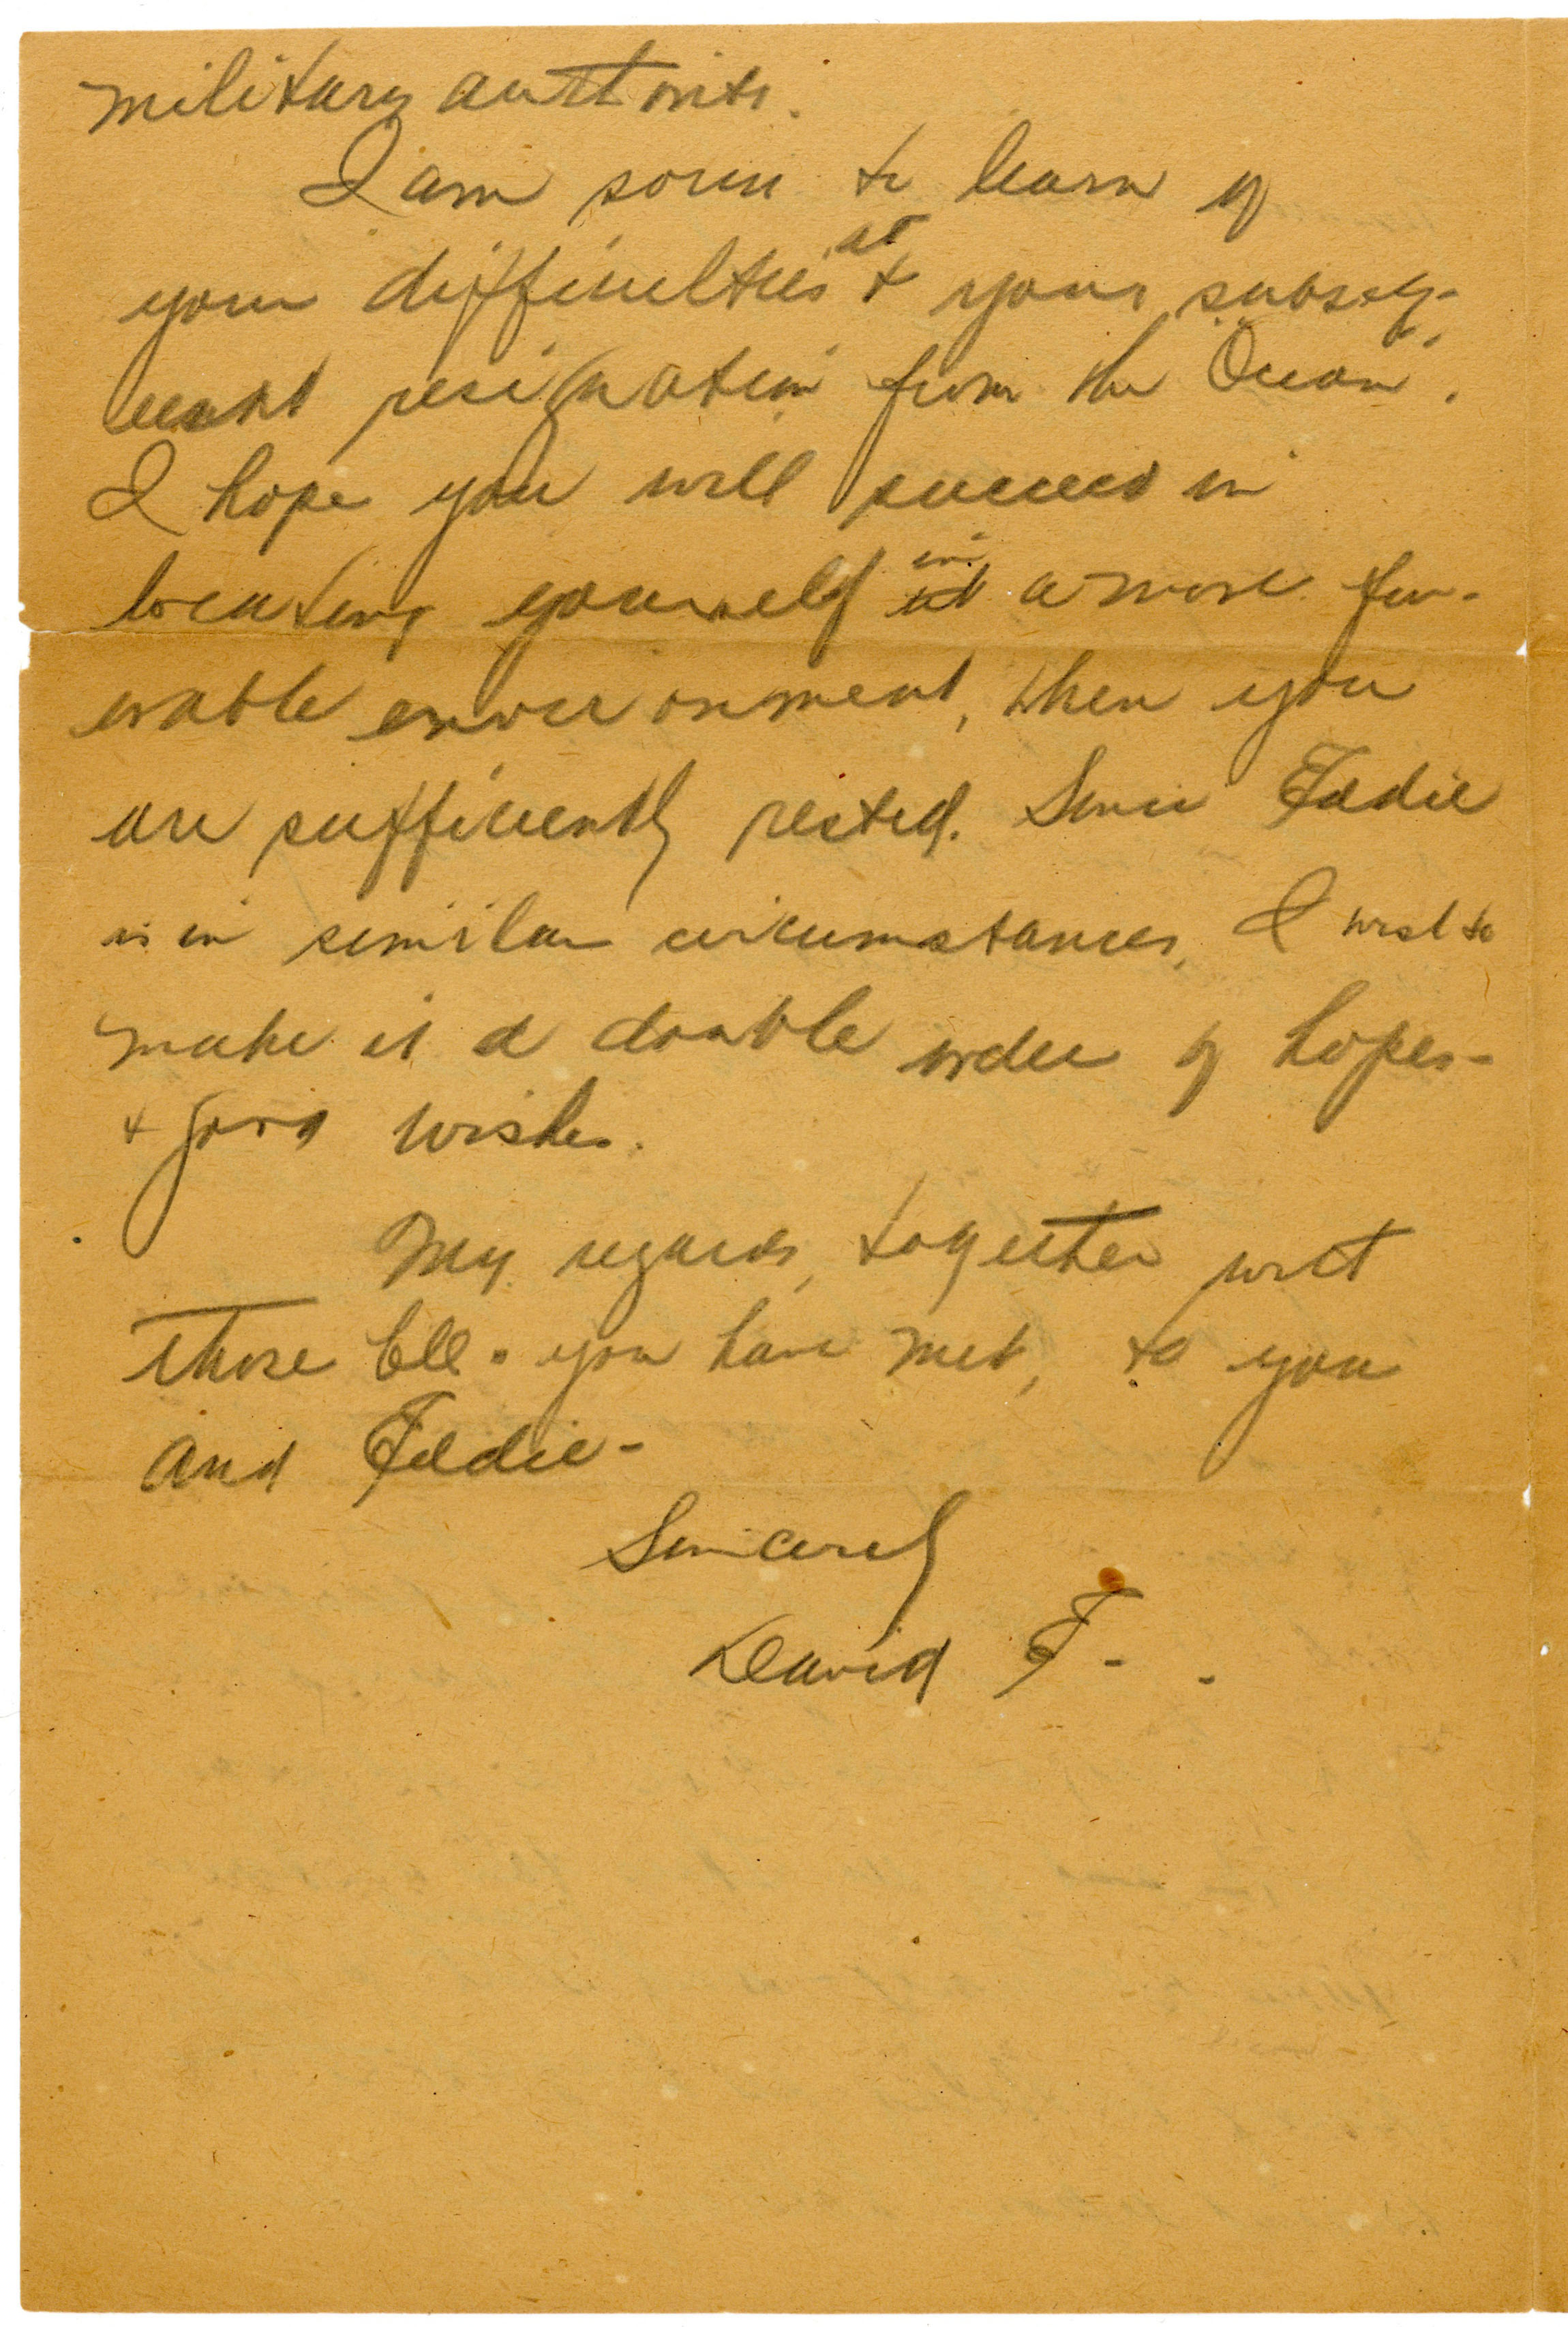 military authority.
I am sorry to learn of
your difficulties & your subseq-
uent resignation from the Ocean.
I hope you will succeed in
locating yourself in a more fav-
orable environment, when you
are sufficiently rested. Since Eddie
is in similar circumstances, I wish to
make it a double order of hopes -
& good wishes.
My regards, together with
those you have met, to you
and Eddie -
Sincerely
David F.